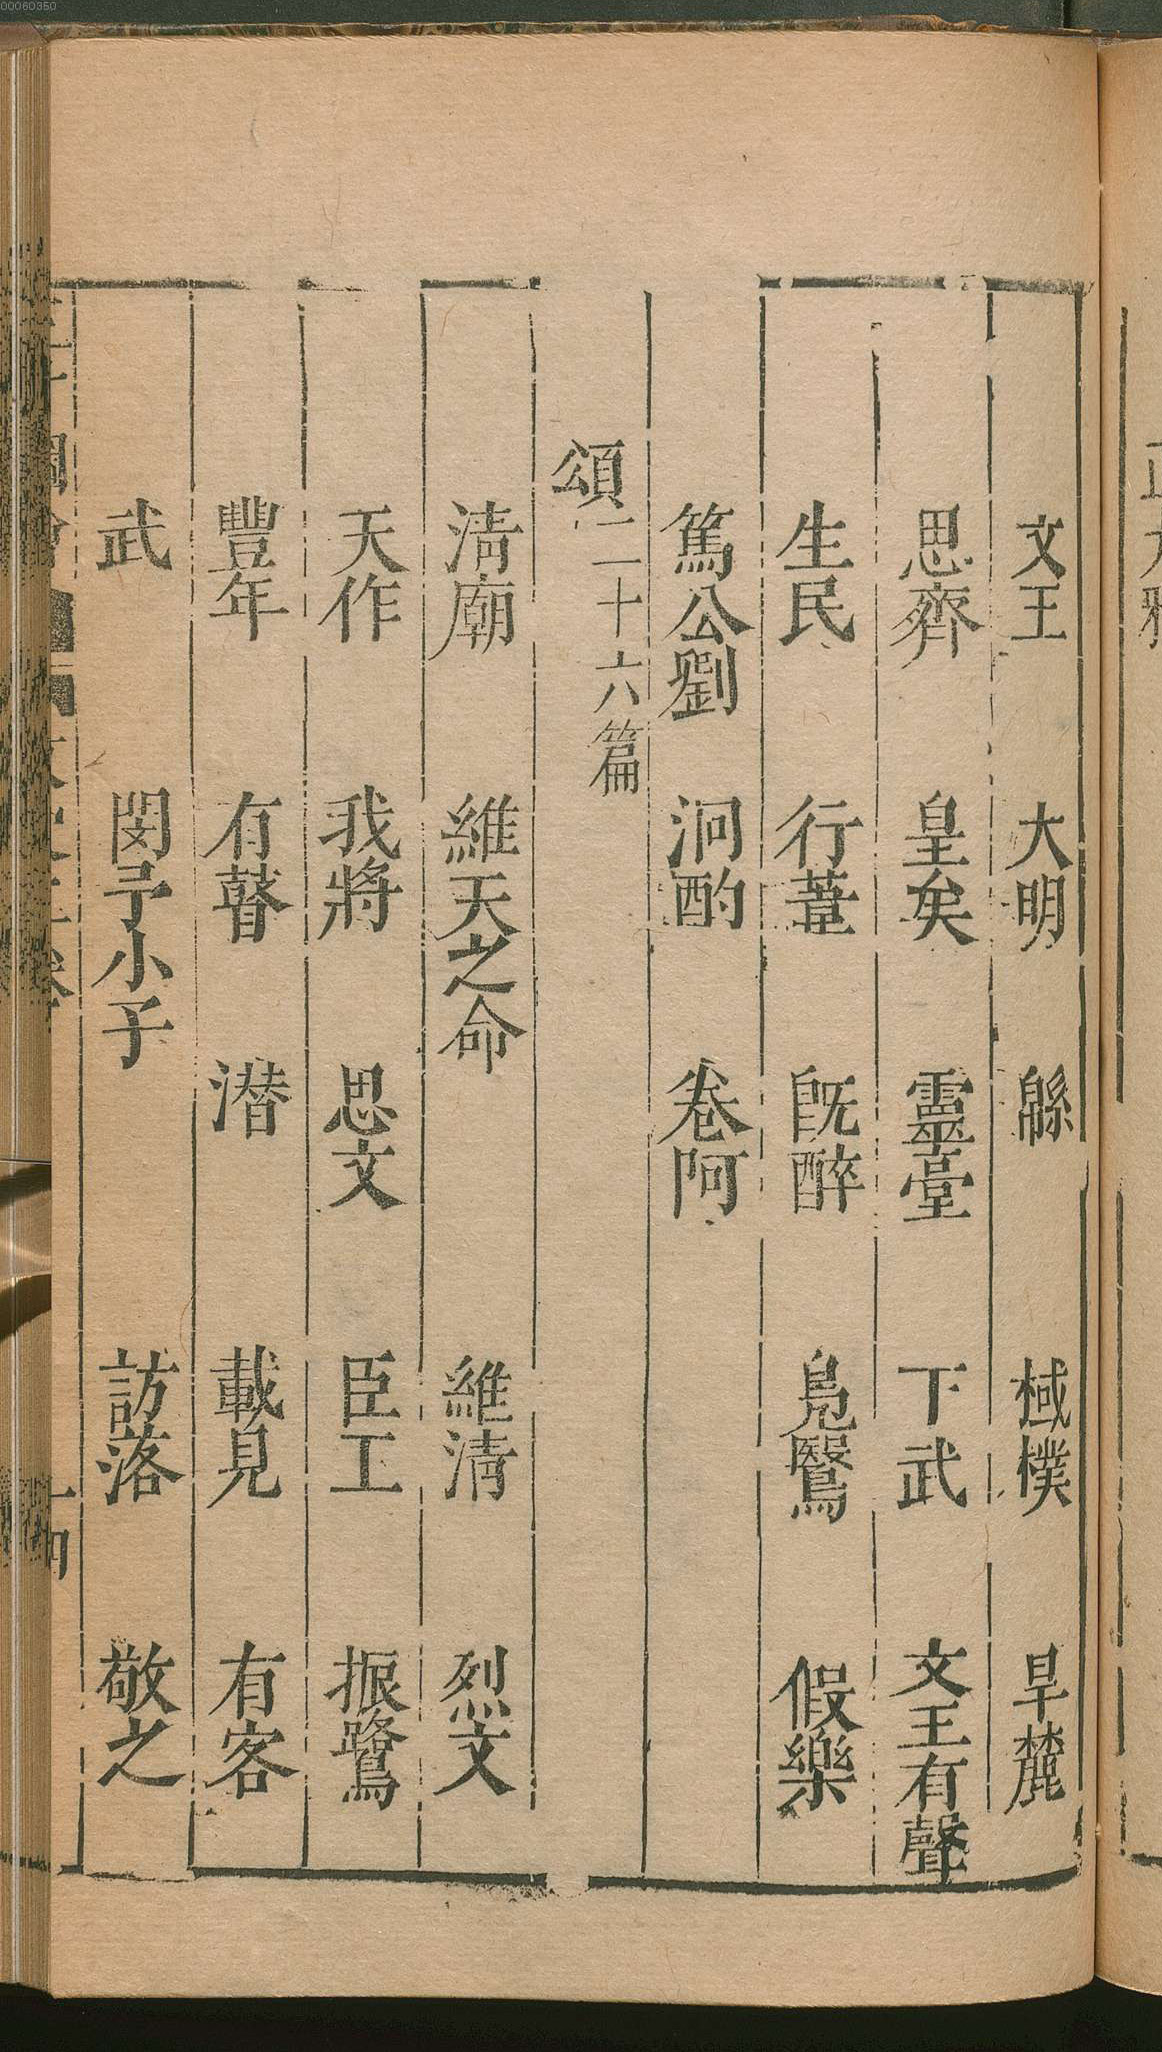 文王 大明 緜 棫樸 旱麓
思齊 皇矣 靈臺 下武 文王有聲
生民 行葦 旣醉 鳧鷖 假樂
篤公劉 泂酌 卷阿
頌二十六篇
淸廟 維天之命 維淸 烈文
天作 我將 思文 臣工 振鷺
豐年 有瞽 潜 載見 有客
武 閔予小子 訪落 敬之
00060350